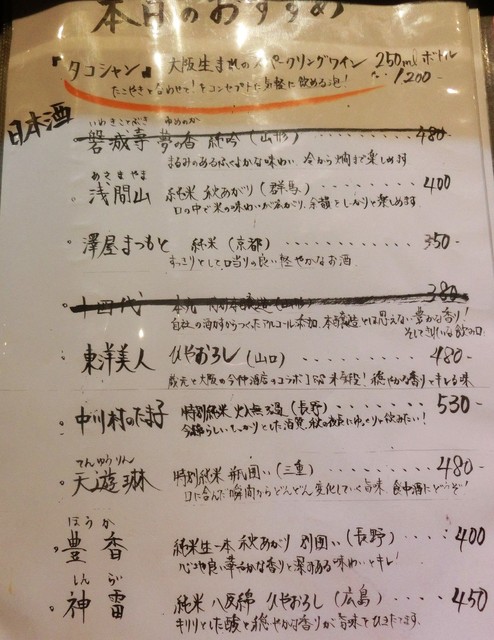 本日のおすすめ
『タコシャン』 大阪生まれのスパークリングワイン 250mlボトル
たこやきと合わせて!をコンセプトに気軽に飲める泡! 1200-
日本酒
いわきことぶき ゆめのか
磐城壽 夢の香 純吟(山形) 480-
まるみのあるふくよかな味わい、冷から燗まで楽しめます
あさまやま
浅間山 純米 秋あがり(群馬) 400
口の中で米の味わいが広がり、余韻をしっかりと楽しめます
澤屋まつもと 純米(京都) 350-
すっきりとして口当りの良い軽やかなお酒
十四代 本丸 (山形) 380-
自社の酒粕からつくったアルコール添加、本醸造とは思えない豊かな香り!
そしてきれいな飲み口
東洋美人 ひやおろし(山口) 480-
蔵元と大阪の今仲酒店のコラボ 穏やかな香りとキレる味
中川村のたま子 特別純米 火入無濾過(長野) 530-
今錦らしいしっかりとした酒質、秋の夜長にゆっくりと飲みたい!
てんゆうりん
天遊琳 特別純米 瓶囲い(三重) 480-
口に含んだ瞬間からどんどん変化していく旨味 食中酒にどうぞ!
ほうか
豊香 純米生一本 秋あがり 別囲い(長野) 400
心地良い華やかな香りと深みある味わいとキレ!
しんらい
神雷 純米 八反錦 ひやおろし(広島) 450
キリリとした酸と穏やかな香りが旨味とひきたてます